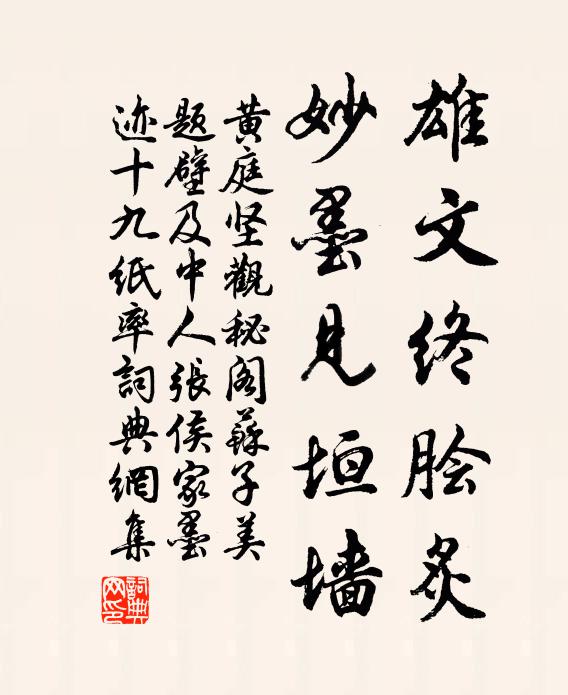 雄文终脍炙
妙墨见垣墙
黄庭坚觀秘阁蘇子美
题壁及中人張侯家墨
迹十九纸率詞典網集
詞典网印